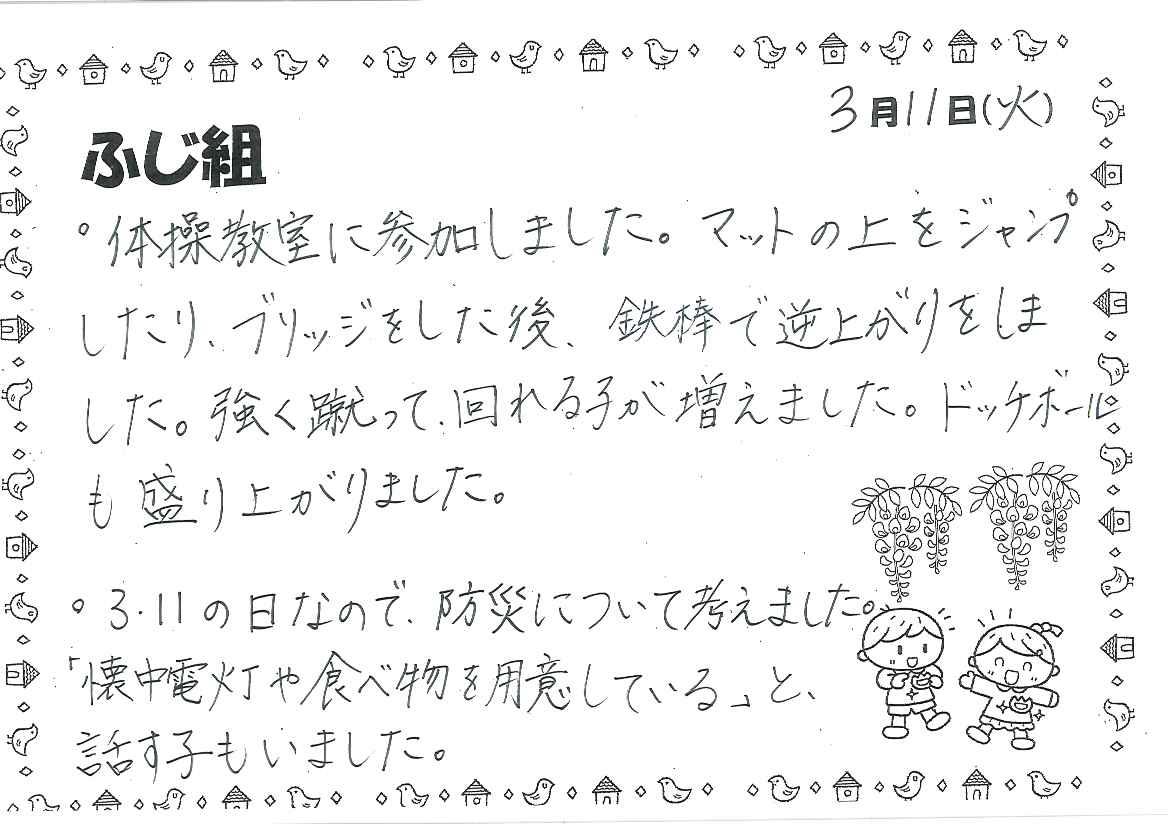 3月11日(火)
ふじ組
。体操教室に参加しました。マットの上をジャンプ
したり、ブリッジをした後、鉄棒で逆上がりをしま
した。強く蹴って、回れる子が増えました。ドッチボール
も盛り上がりました。
。3.11の日なので、防災について考えました。
「懐中電灯や食べ物を用意している」と、
話す子もいました。